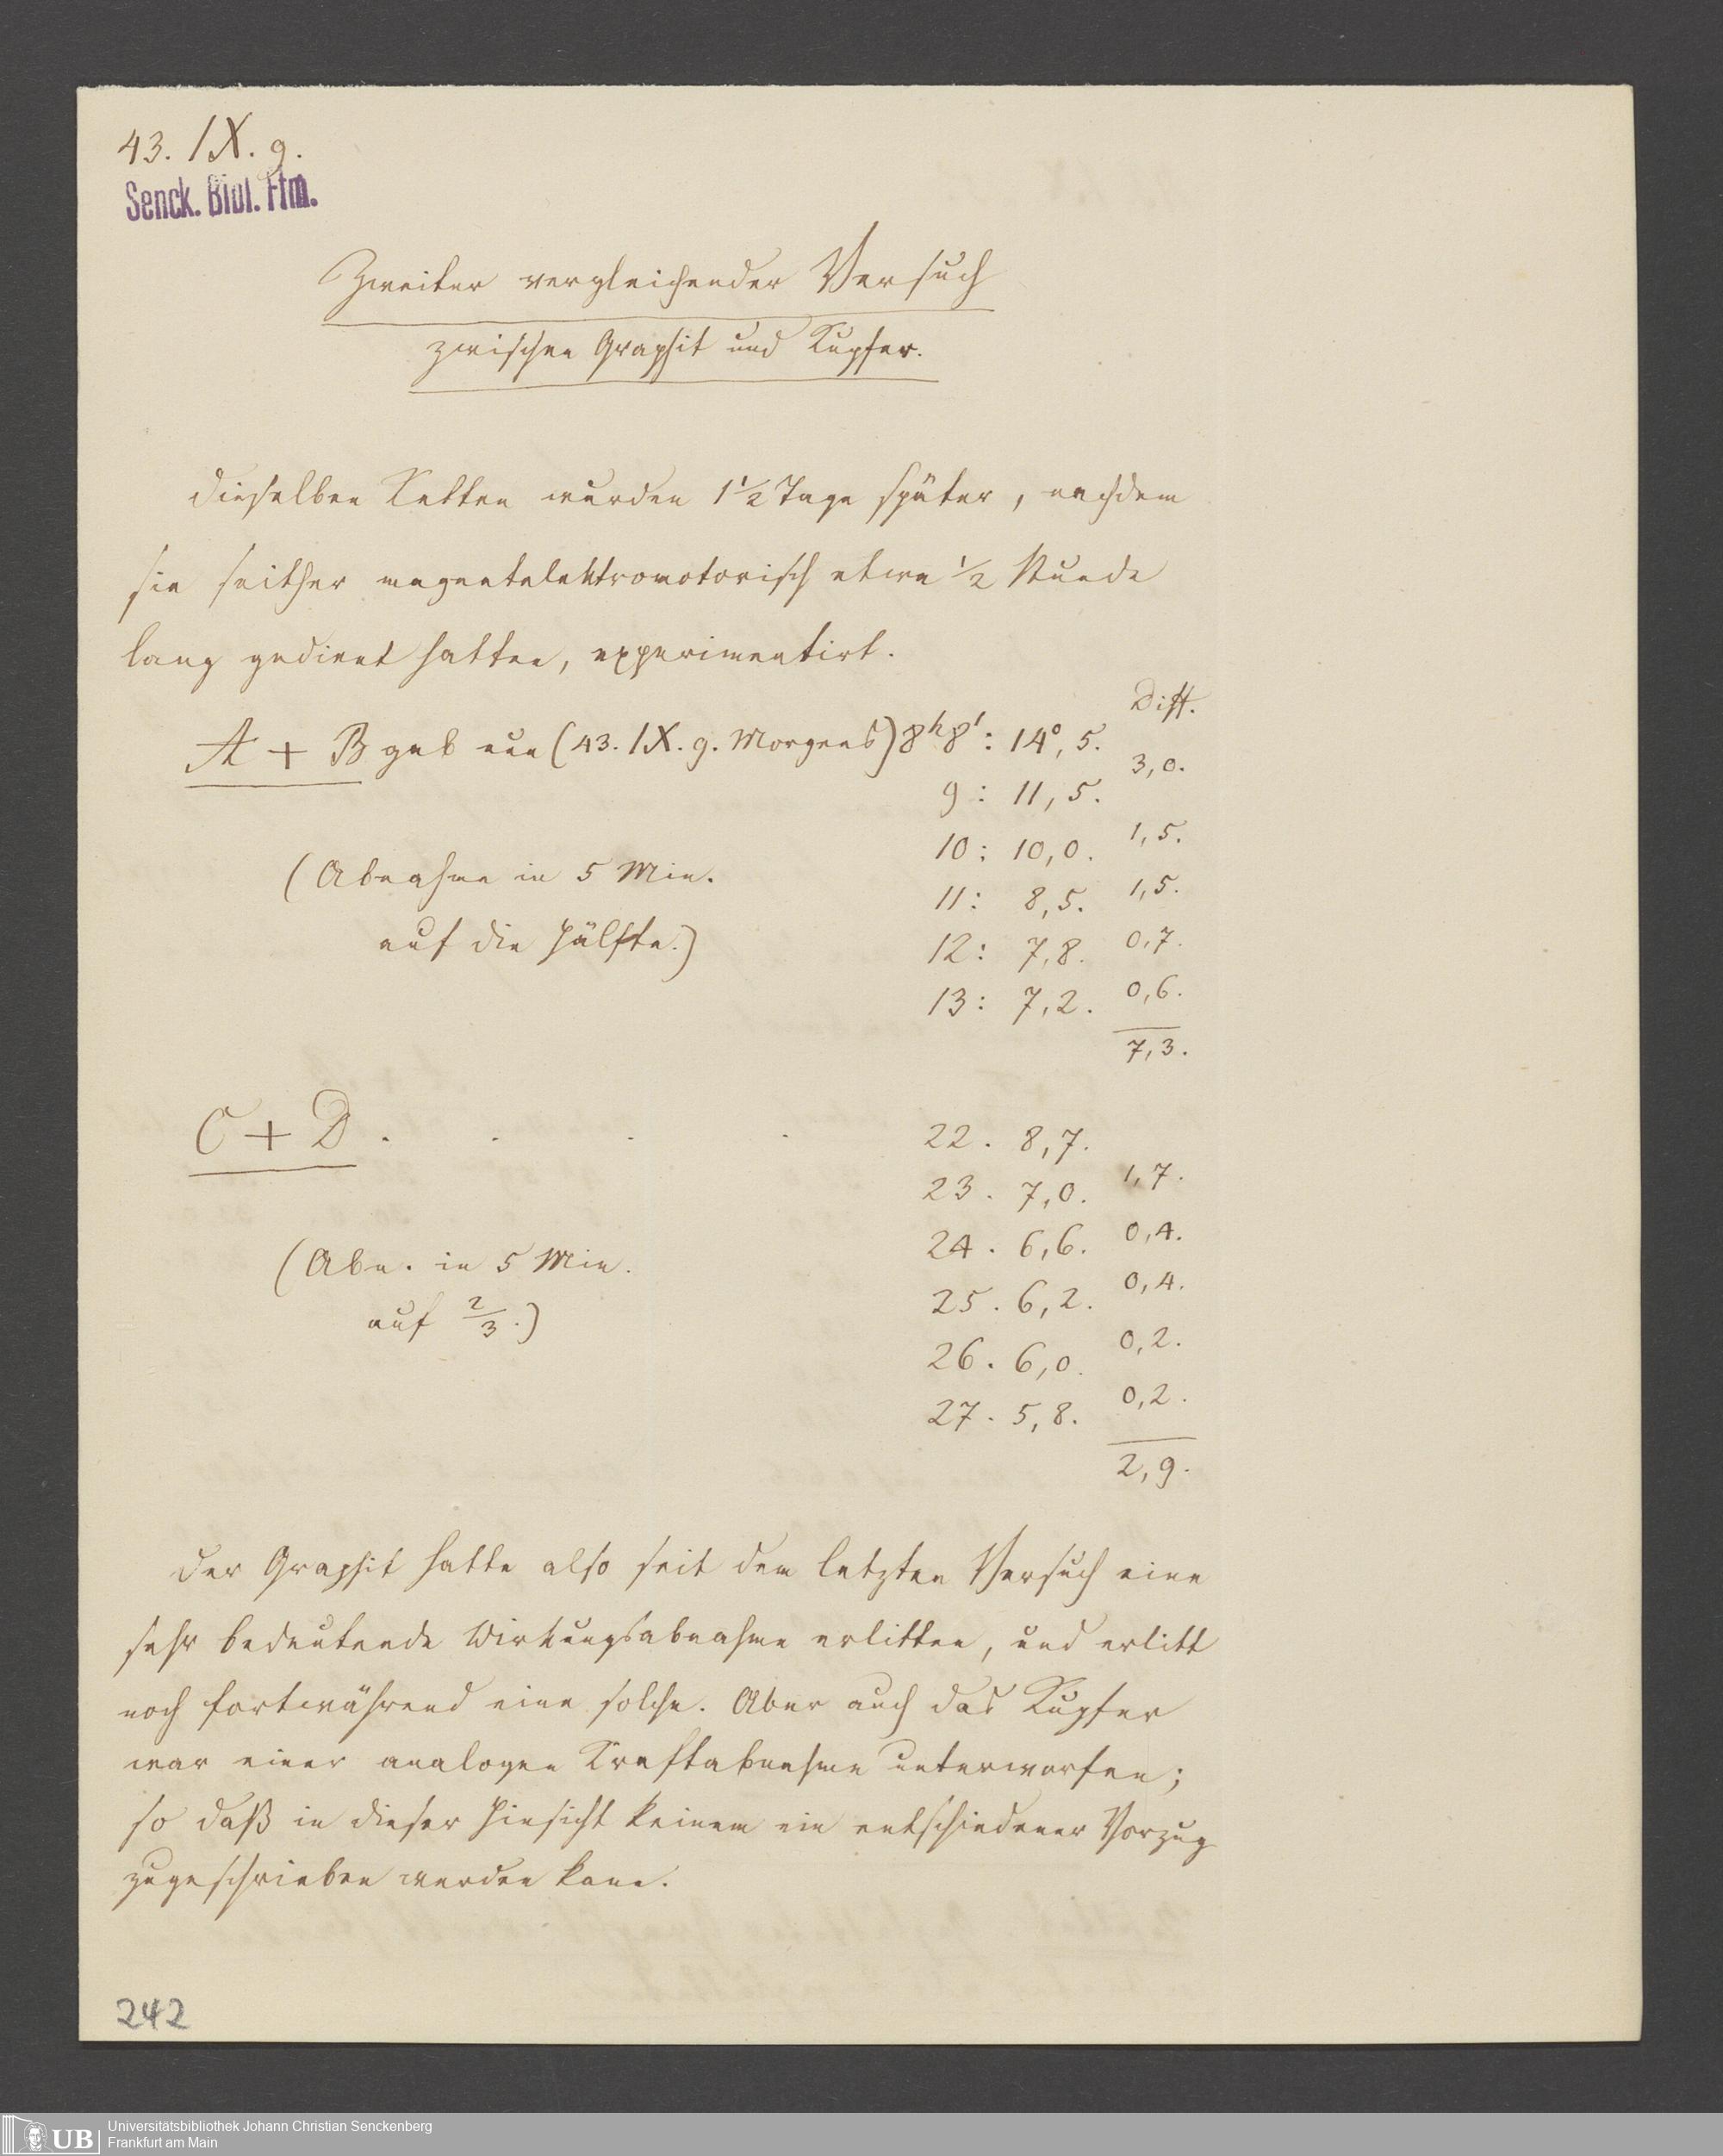 43. IX. 9.
Senck. Bibl. Ffm.
Zweiter vergleichender Versuch
zwischen Graphit und Kupfer.
Dieselben Ketten wurden 1½ Tage später, nachdem
sie seither magnetelektromotorisch etwa ½ Stunde
lang gedient hatten, experimentirt.
Diff.
A + B gab nun (43. IX. 9. Morgens) 8h 8': 14°, 5.
3,0.
9: 11,5.
1,5.
10: 10,0.
(Abnahme in 5 Min.
1,5.
11: 8,5.
auf die Hälfte.)
0,7.
12: 7,8.
0,6.
13: 7,2.
7,3.
C + D . . . . 22. 8,7.
1,7.
23. 7,0.
0,4.
24. 6,6.
(Abn. in 5 Min.
0,4.
25. 6,2.
auf 2/3.)
0,2.
26. 6,0.
0,2.
27. 5,8.
2,9.
Der Graphit hatte also seit dem letzten Versuch eine
sehr bedeutende Wirkungsabnahme erlitten, und erlitt
noch fortwährend eine solche. Aber auch das Kupfer
war einer analogen Kraftabnahme unterworfen;
so daß in dieser Hinsicht keinem ein entschiedener Vorzug
zugeschrieben werden kann.
242
UB
Universitätsbibliothek Johann Christian Senckenberg
Frankfurt am Main